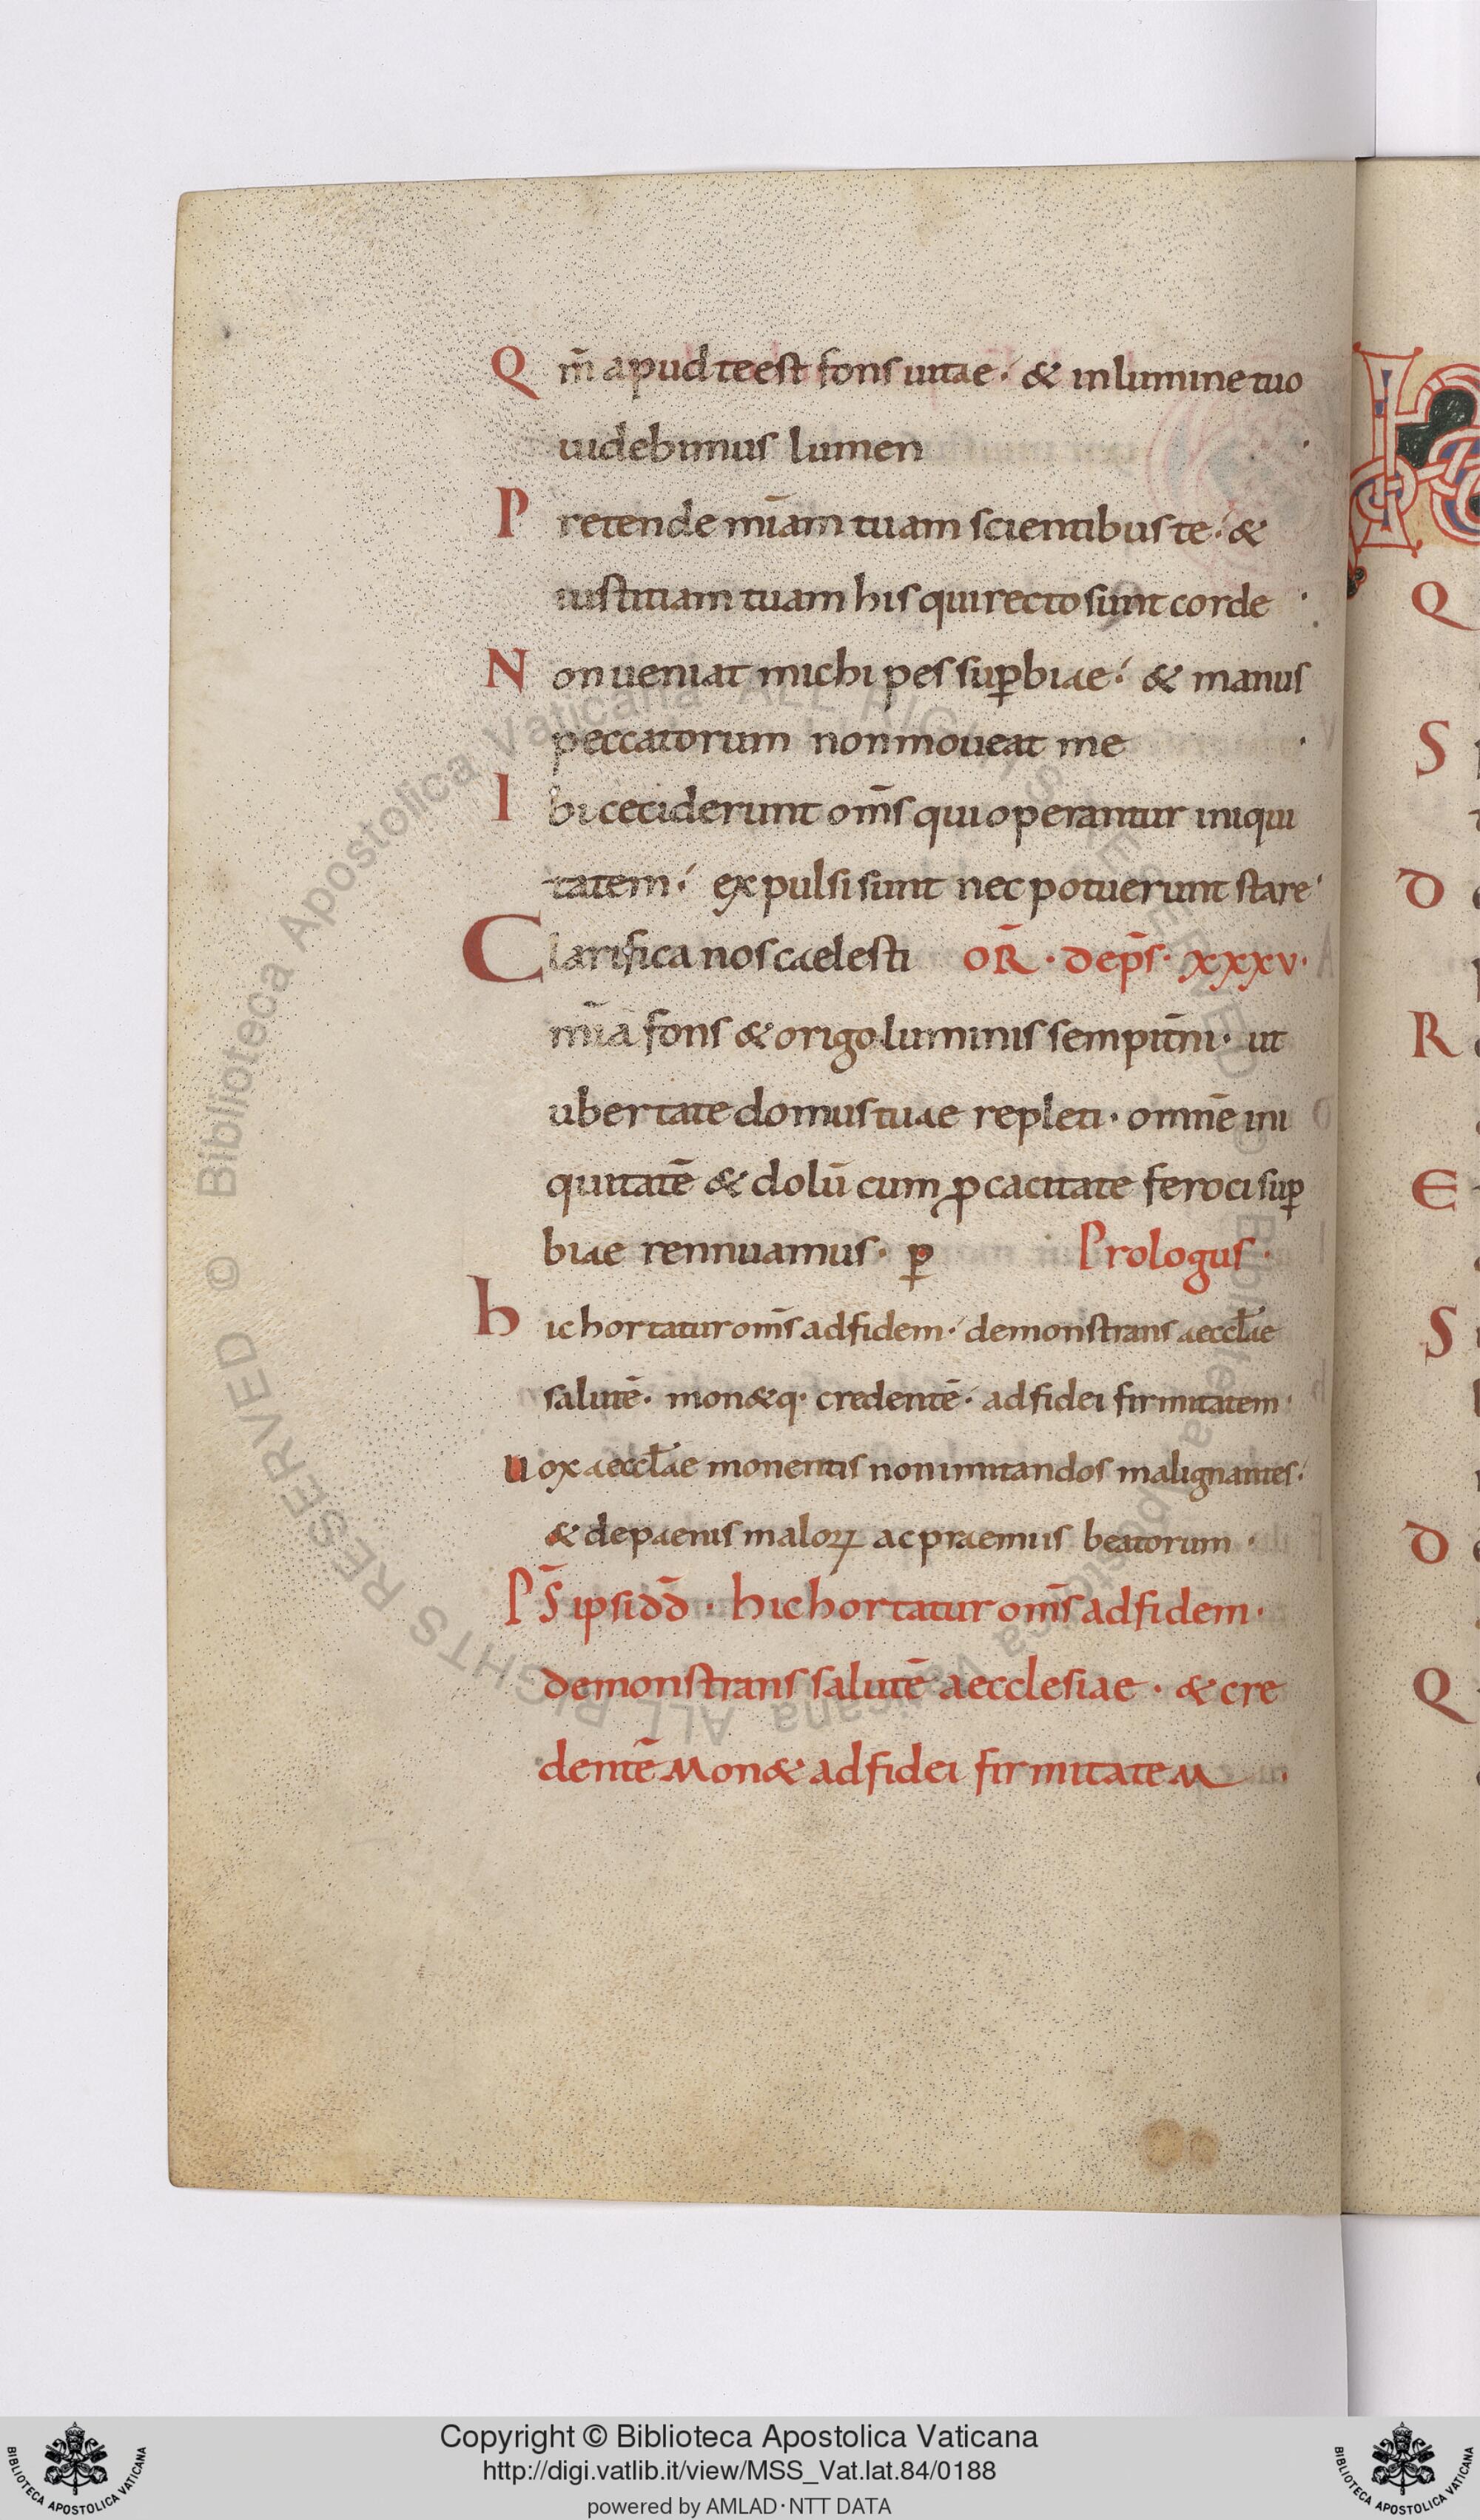 Qm̅ apud te est fons uitae · & in lumine tuo
uidebimus lumen ·
Pretende mi̅am tuam scientibus te · &
iustitiam tuam his qui recto sunt corde ·
Non ueniat michi pes suꝑbiae · & manus
peccatorum non moueat me ·
Ibi ceciderunt om̅s qui operantur iniqui
tatem · expulsi sunt nec potuerunt stare ·
Clarifica nos caelesti OR̅ · de ps̅ · xxxv ·
mi̅a fons & origo luminis sempit̅ni · ut
ubertate domus tuae repleti · omne̅ ini
quitate̅ & dolu̅ cum ꝓcacitate feroci suꝑ
biae rennuamus · ꝑ Prologus ·
hic hortatur om̅s ad fidem · demonstrans aeccl̅ae
salute̅ · mon&q· credente̅ · ad fidei firmitatem ·
uox aeccl̅ae monentis non imitandos malignantes ·
& de paenis maloꝝ ac praemiis beatorum ·
PS̅ ipsi dd̅ · hic hortatur om̅s ad fidem ·
demonstrans salute̅ aecclesiae · & cre
dente̅ mon& ad fidei firmitatem ·
Q
S
D
R
E
S
D
Q
© Biblioteca Apostolica Vaticana ALL RIGHTS RESERVED © Biblioteca Apostolica Vaticana ALL RIGHTS RESERVED
BIBLIOTECA APOSTOLICA VATICANA
Copyright © Biblioteca Apostolica Vaticana
http://digi.vatlib.it/view/MSS_Vat.lat.84/0188
powered by AMLAD·NTT DATA
BIBLIOTECA APOSTOLICA VATICANA